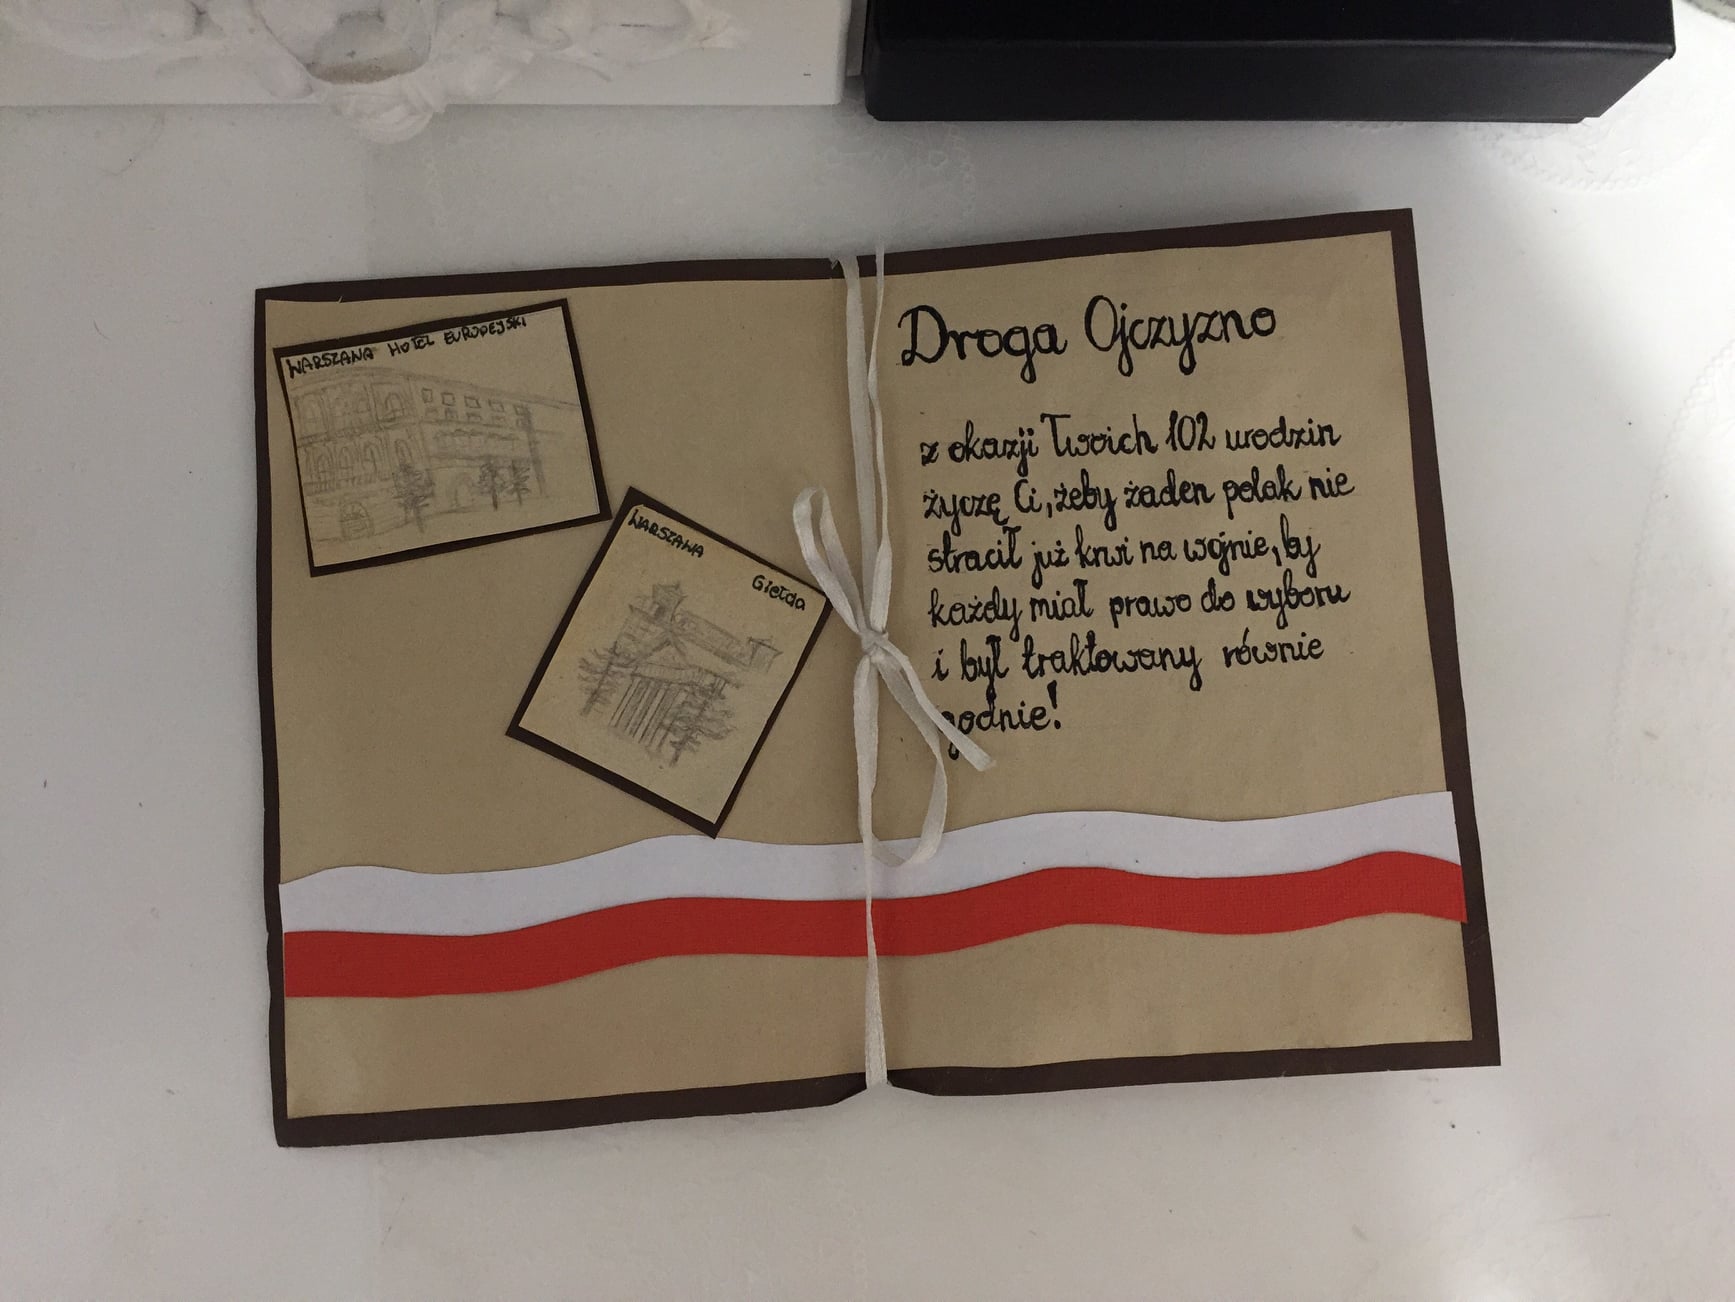 WARSZAWA HOTEL EUROPEJSKI
WARSZAWA
Giełda
Droga Ojczyzno
z okazji Twoich 102 urodzin
życzę Ci, żeby żaden polak nie
stracił już krwi na wojnie, by
każdy miał prawo do wyboru
i był traktowany równie
godnie!